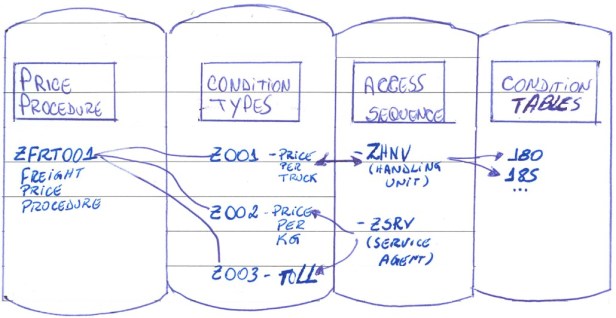 PRICE
PROCEDURE
ZFRT001
FREIGHT
PRICE
PROCEDURE
CONDITION
TYPES
Z001 - PRICE
PER
TRUCK
Z002 - PRICE
PER
KG
Z003 - TOLL
ACCESS
SEQUENCE
- ZHNV
(HANDLING
UNIT)
- ZSRV
(SERVICE
AGENT)
CONDITION
TABLES
180
185
...